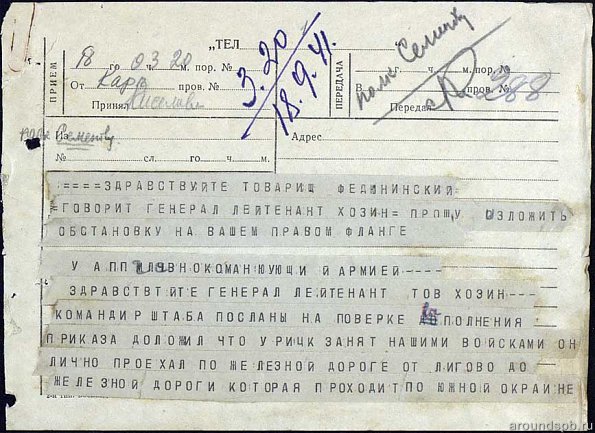 „ТЕЛ
ПРИЕМ
18 го 03.20 м. пор. №
От Карр пров. №
Принял
3.20
18.9.41.
ПЕРЕДАЧА
ч. м. пор. №
В пров. №
Передал
полк Семенову
Из
№ сл. го ч. м.
Адрес
====ЗДРАВСТВУЙТЕ ТОВАРИЩ ФЕДЮНИНСКИЙ
=ГОВОРИТ ГЕНЕРАЛ ЛЕЙТЕНАНТ ХОЗИН= ПРОШУ ИЗЛОЖИТЬ
ОБСТАНОВКУ НА ВАШЕМ ПРАВОМ ФЛАНГЕ
У АПП КОМАНУЮЩИЙ АРМИЕЙ----
ЗДРАВСТВТЙТЕ ГЕНЕРАЛ ЛЕЙТЕНАНТ ТОВ ХОЗИН---
КОМАНДИР ШТАБА ПОСЛАНЫ НА ПОВЕРКЕ ИСПОЛНЕНИЯ
ПРИКАЗА ДОЛОЖИЛ ЧТО УРИЦК ЗАНЯТ НАШИМИ ВОЙСКАМИ ОН
ЛИЧНО ПРОЕХАЛ ПО ЖЕЛЕЗНОЙ ДОРОГЕ ОТ ЛИГОВО ДО
ЖЕЛЕЗНОЙ ДОРОГИ КОТОРАЯ ПРОХОДИТ ПО ЮЖНОЙ ОКРАИНЕ
aroundspb.ru